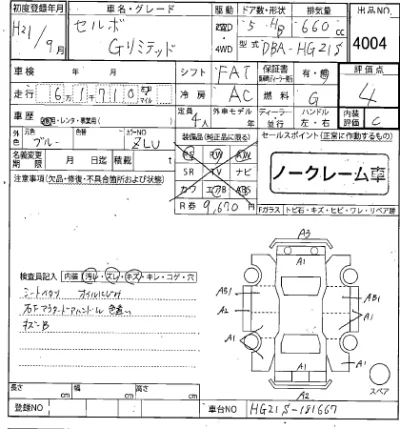 初度登録年月 車名・グレード 駆動 ドア数・形状 排気量 出品NO
H21/9月 セルボ Gリミテッド 2WD 4WD 5 HB 660cc 4004
型式 DBA-HG21S
車検 年 月 シフト FAT 保証書 有・無 評価点
走行 6万1千710 キロ マイル 冷房 AC 燃料 G 4
車歴 自家・レンタ・事業用( ) 定員 4人 外車モデル ディーラー 並行 ハンドル 左・右 内装評価 C
外色 元色 ブルー 色替 カラーNO ZLU
装備品(純正品に限る) セールスポイント(正常に作動するもの)
名義変更期限 月 日迄 積載 t
PS PW AW
SR TV ナビ
カワ エアB ABS
ノークレーム車
注意事項(欠品・修復・不具合箇所および状態)
R券 9,670円
Fガラス トビ石・キズ・ヒビ・ワレ・リペア跡
A3
A1
検査員記入 内装 汚れ・スレ・キズ・キレ・コゲ・穴
AB1 A1 AB1
A2 A1
キズ・B
A1 A1 A1
A1
A2
スペア
長さ cm 幅 cm 高さ cm
登録NO 車台NO HG21S-181667